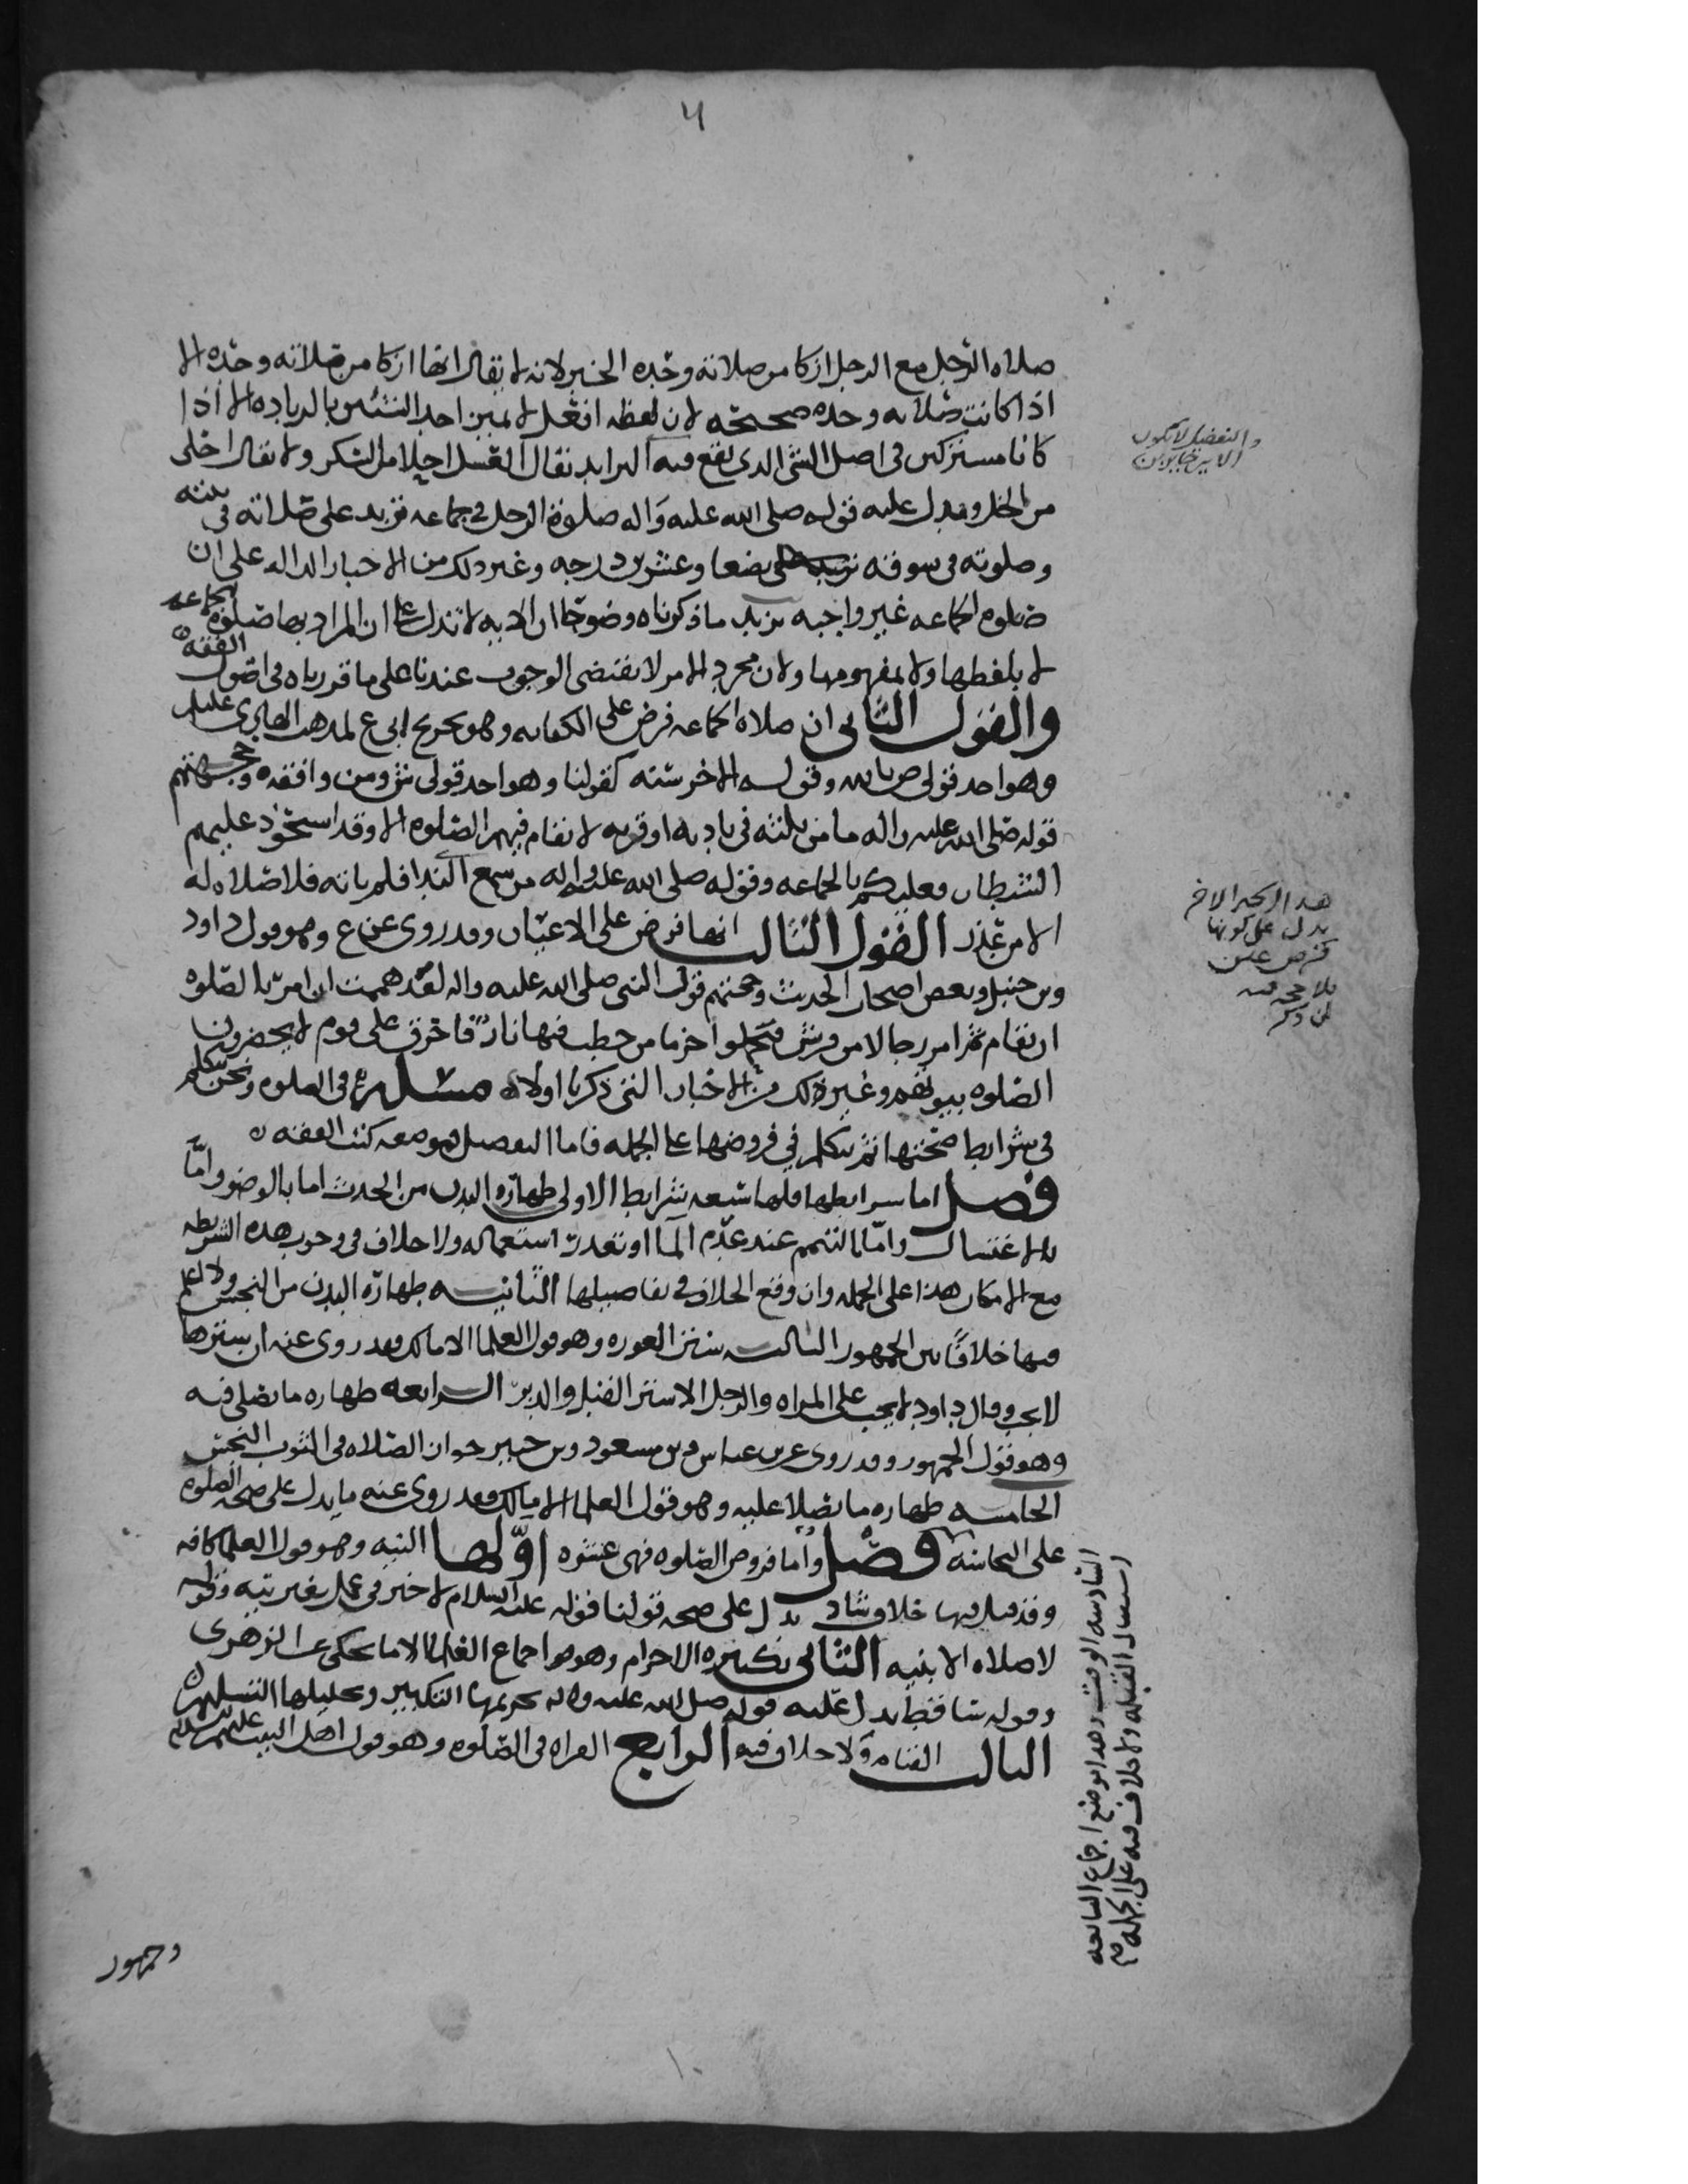 صلاه الرجل مع الرجل ازكا من صلاته وحده الخبر لانه لا يقال انها ازكا من صلاته وحده الا
اذا كانت صلاته وحده صحيحه لان لفظه افعل لا يميز احد الشيئين بالزياده الا اذا
كانا مشتركين في اصل الشي الذي يقع فيه التزايد يقال العسل احلا من السكر ولا يقال احلى
من الخل ويدل عليه قوله صلى الله عليه واله صلوة الرجل في جماعه تزيد على صلاته في بيته
وصلوته في سوقه بضعا وعشرين درجه وغير ذلك من الاخبار الداله على ان
صلوه الجماعه غير واجبه يزيد ما ذكرناه وضوحا ان الايه لا تدل على ان المراد بها صلوة الجماعه
لا بلفظها ولا بمفهومها ولان مجرد الامر لا يقتضي الوجوب عندنا على ما قررناه في اصول الفقه
والقول الثاني ان صلاه الجماعه فرض على الكفايه وهو تخريج ابي ع لمذهب الهادي عليلم
وهو احد قولي ص بالله وقوله الاخر سنه كقولنا وهو احد قولي ش ومن وافقه وحجتهم
قوله صلى الله عليه واله ما من ثلثه في باديه او قريه لا تقام فيهم الصلوه الا وقد استحوذ عليهم
الشيطان فعليكم بالجماعه وقوله صلى الله عليه واله من سمع الندا فلم ياته فلا صلاه له
الا من عذر القول الثالث انها فرض على الاعيان وقد روي عن ع وهو قول داود
وبن حنبل وبعض اصحاب الحديث وحجتهم قول النبي صلى الله عليه واله لقد هممت ان امر بالصلوه
ان تقام ثم امر رجالا من قريش فيحملوا حزما من حطب فيها نار فاحرق على قوم لا يحضرون
الصلوه بيوتهم وغير ذلك من الاخبار التي ذكرنا اولا مسله في الصلوه ونحن نتكلم
في شرايط صحتها ثم نتكلم في فروضها على الجمله فاما التفصيل فموضعه كتب الفقه
فصل اما شرايطها فلها سبعه شرايط الاولى طهاره البدن من الحدث اما بالوضو واما
بالاغتسال واما بالتيمم عند عدم الما او تعذر استعماله ولا خلاف في وجوب هذه الشريطه
مع الامكان هذا على الجمله وان وقع الخلاف في تفاصيلها الثانيه طهارة البدن من النجس ولا اعلم
فيها خلافا بين الجمهور الثالثه ستر العوره وهو قول العلما الا مالك فقد روى عنه ان سترها
لا يجب وقال داود لا يجب على المراه والرجل الا ستر القبل والدبر الرابعه طهاره ما يصلي فيه
وهو قول الجمهور وقد روى عن بن عباس وبن مسعود وبن جبير جواز الصلاه في الثوب النجس
الخامسه طهاره ما يصلا عليه وهو قول العلما الا مالك فقد روى عنه ما يدل على صحه الصلوه
على النجاسه فصل واما فروض الصلوه فهي عشره اولها النيه وهو قول العلما كافه
وقد قيل فيها خلاف شاذ يدل على صحه قولنا قوله عليه السلام لا خير في عمل بغير نيه وقوله
لا صلاه الا بنيه الثاني تكبيره الاحرام وهو اجماع العلما الا ما يحكى عن الزهري
وقوله ساقط يدل عليه قوله صلى الله عليه واله تحريمها التكبير وتحليلها التسليم
الثالث القيام ولا خلاف فيه الرابع القراه في الصلوه وهو قول اهل البيت عليهم السلم
وجمهور
والتفضيل لا يكون
هذا الخبر الاخر
يدل على كونها
فرض عين
فلا حجه فيه
لمن ذكر
السادسه الوقت وهذا موضع اجماع السابعه
استقبال القبله ولا خلاف فيه على الجمله